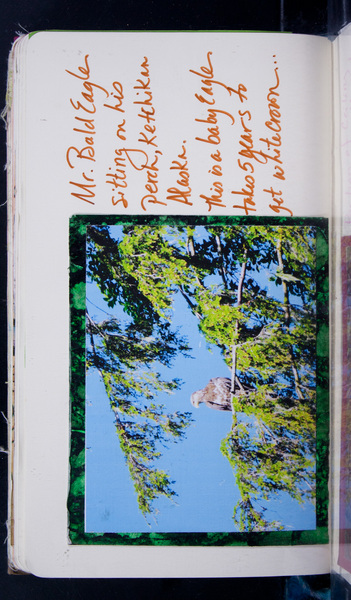 Mr. Bald Eagle
sitting on his
perch, Ketchikan
Alaska.
This is a baby Eagle
takes 5 years to
get white crown...